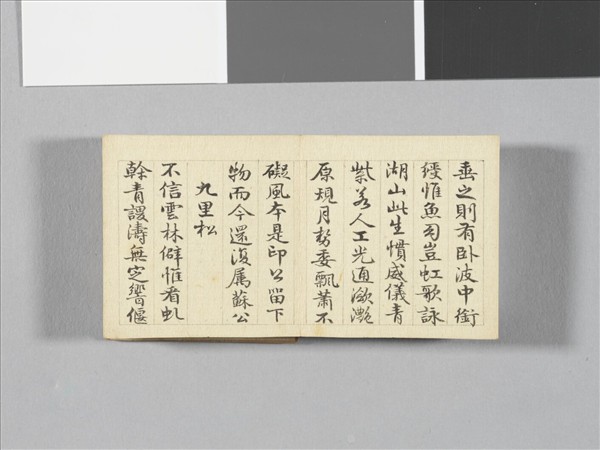 垂之則有卧波中銜
綬惟魚匃豈虹歌詠
湖山此生慣威儀青
紫若人工光通瀲灔
原規月勢委飄蕭不
礙風本是印公留下
物而今還復属蘇公
九里松
不信雲林僻惟看虬
幹青謖濤無定響偃